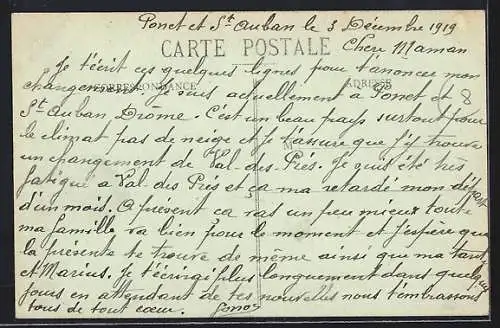 Ponet et St Auban le 3 Décembre 1919
CARTE POSTALE
Chere Maman
Je t'écrit ces quelques lignes pour t'anoncer mon
CORRESPONDANCE ADRESSE
changement je suis actuellement a Ponet et
St Auban Drôme. C'est un beau pays surtout pour
le climat pas de neige et je t'assure que j'y trouve
un changement de Val-des-Prés. Je suis été très
fatigué a Val des Prés et ça ma retardé mon départ
d'un mois. A présent ca vas un peu mieux toute
ma famille va bien pour le moment et j'espère que
la présente te trouve de même ainsi que ma tante
et Marius. Je t'écrirai plus longuement dans quelques
jours en attendant de tes nouvelles nous t'embrassons
tous de tout cœur.